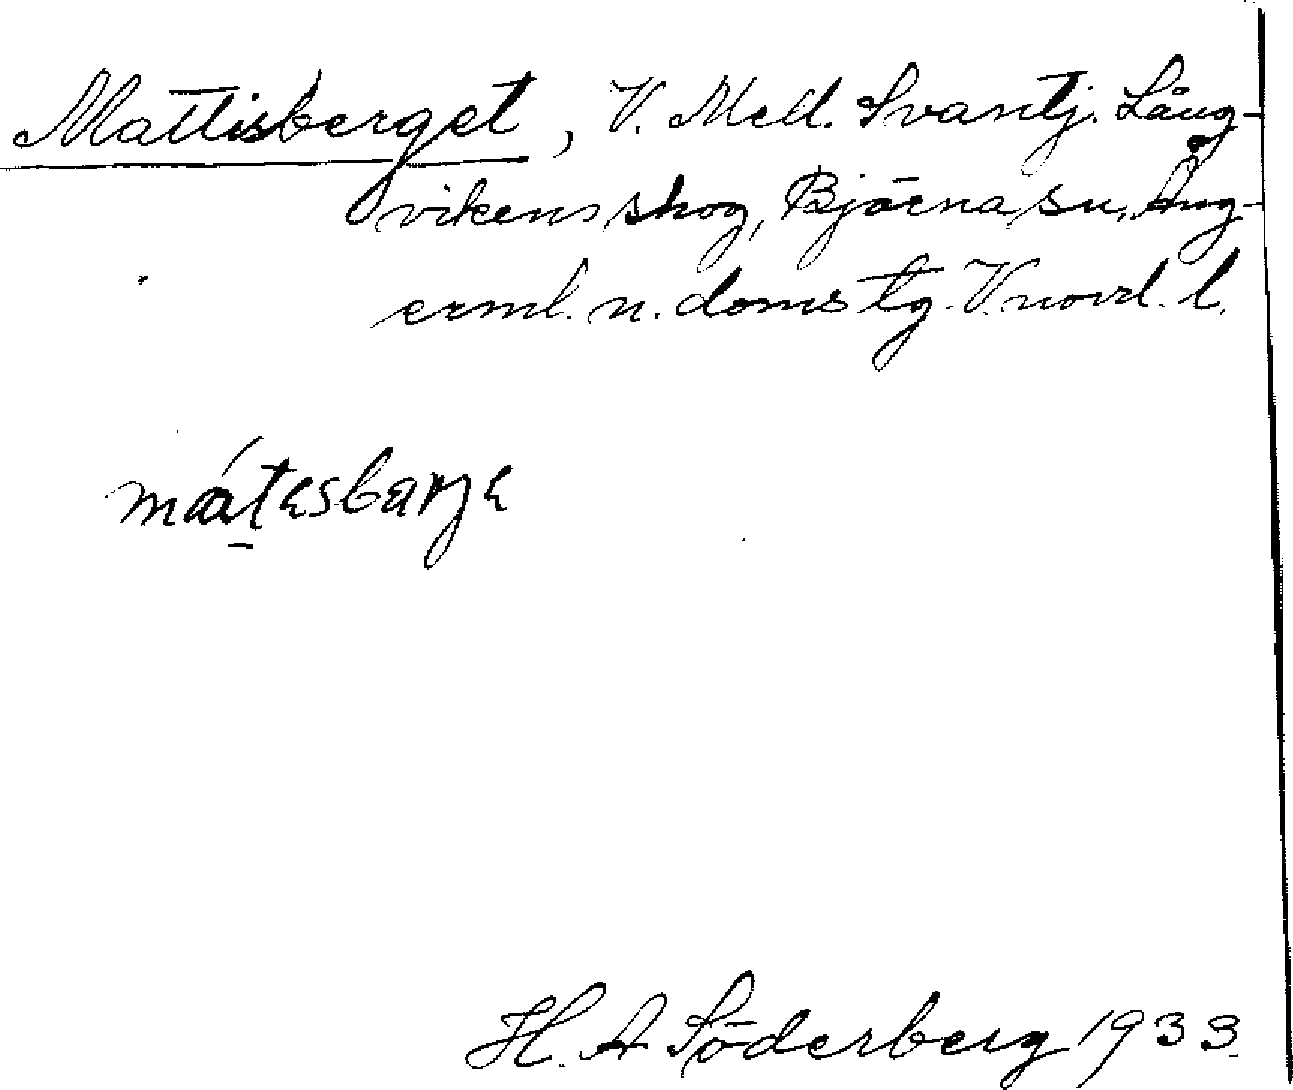 Mattisberget, V. Mell. Svarttj. Lång-
vikens skog, Björna sn, Ång-
erml. n. doms tg. V. norrl. l.
mátɛsbarjɛ
H. A Söderberg 1933